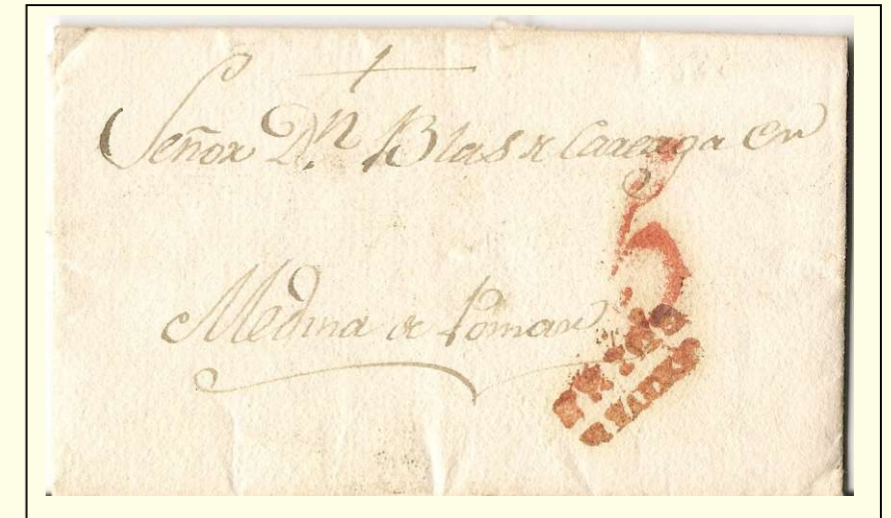 Señor D.n Blas de Careaga en
Medina de Pomar
5